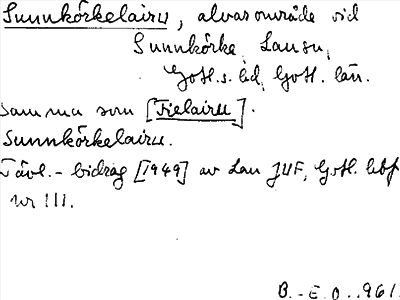 Sunnkörkelairu, alvarområde vid
Sunnkörke, Lausu,
Gotl. s. hd, Gotl. län.
samma som [Fielairu].
Sunnkörkelairu.
Tävl.-bidrag [1949] av Lau JUF, Gotl. hbf
nr III.
B.-E.O., 961.